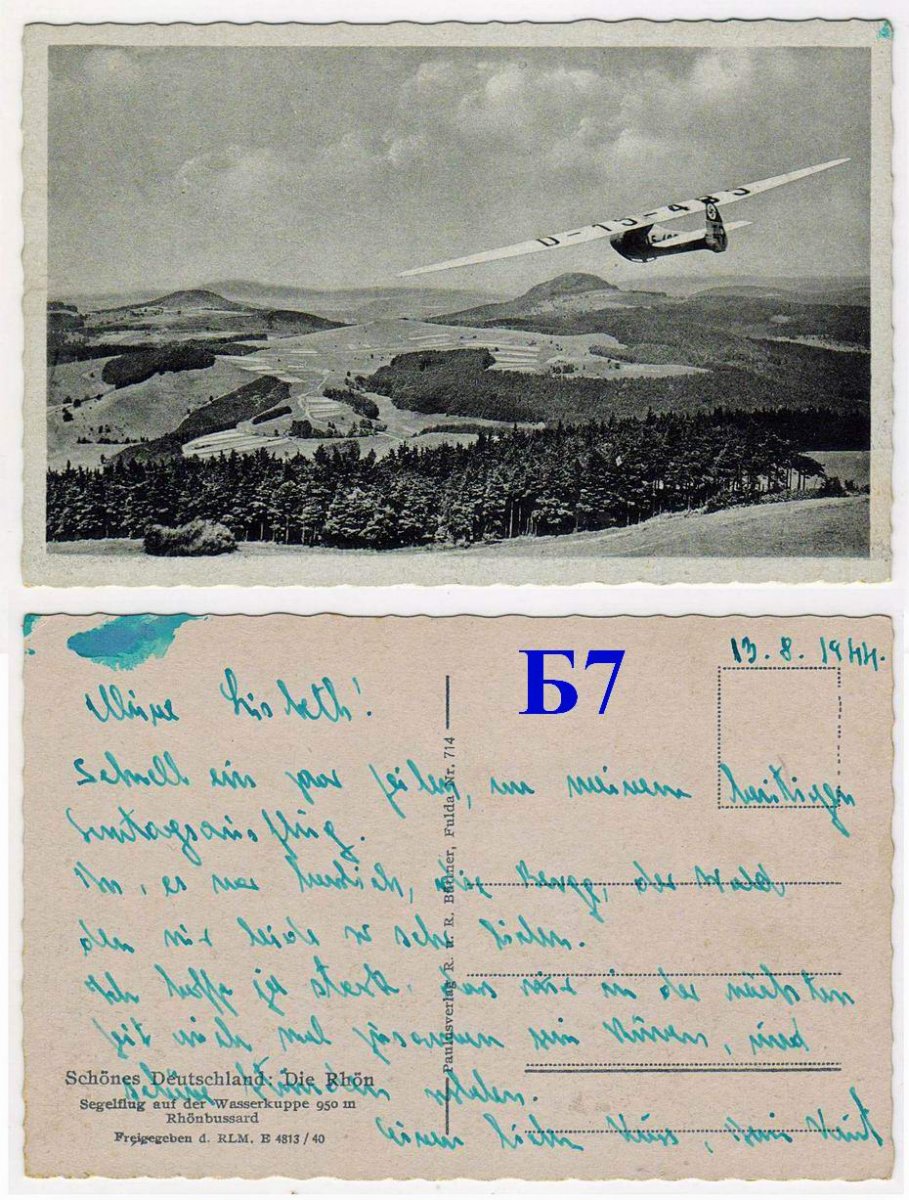 D-15-483
13. 8. 1944.
Б7
Meine Lisbeth!
Schnell ein paar Zeilen, von meinem heutigen
Sontagsausflug.
es war herrlich, die Berge, der Wald,
den wir beide so sehr lieben.
Ich hoffe ja stark, das wir in der nächsten
Zeit noch mal zusammen sein können, und
schöne Stunden erleben.
Einen lieben Kuss,
Paulusverlag R. u. R. Büttner, Fulda Nr. 714
Schönes Deutschland: Die Rhön
Segelflug auf der Wasserkuppe 950 m
Rhönbussard
Freigegeben d. RLM. E 4813/40